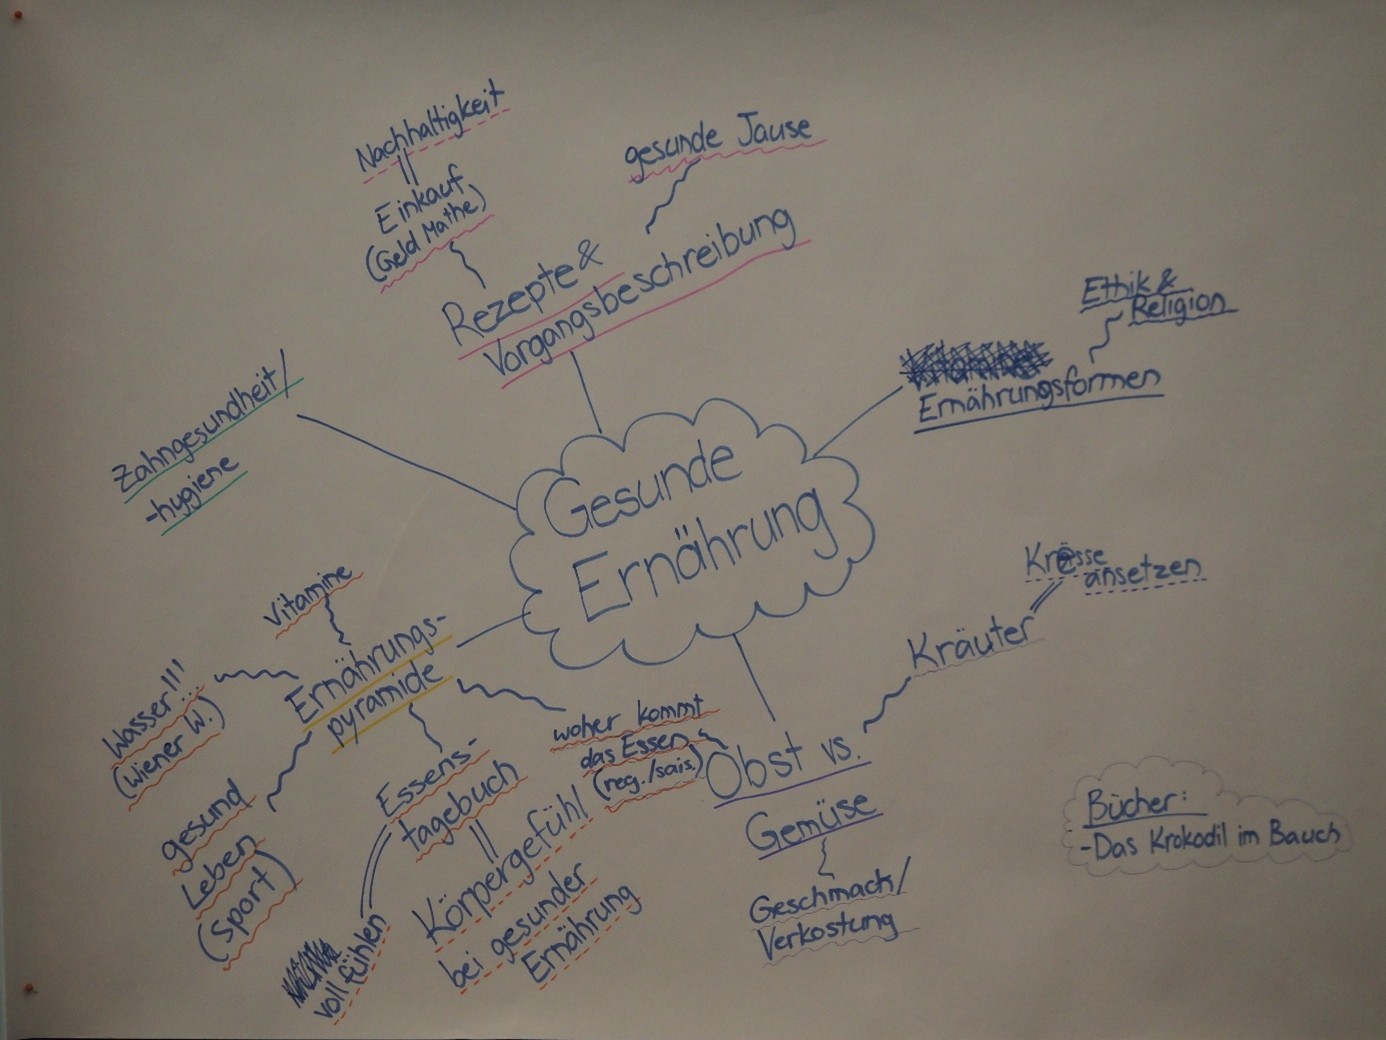 Nachhaltigkeit
Einkauf
(Geld Mathe)
gesunde Jause
Rezepte &
Vorgangsbeschreibung
Ethik &
Religion
Ernährungsformen
Zahngesundheit/
-hygiene
Gesunde
Ernährung
Kresse
ansetzen
Kräuter
Vitamine
Ernährungs-
pyramide
Wasser!!!...
(Wiener W.)
woher kommt
das Essen
(reg./sais.)
Obst vs.
Gemüse
Geschmack/
Verkostung
gesund
Leben
(Sport)
Essens-
tagebuch
voll fühlen
Körpergefühl
bei gesunder
Ernährung
Bücher:
-Das Krokodil im Bauch